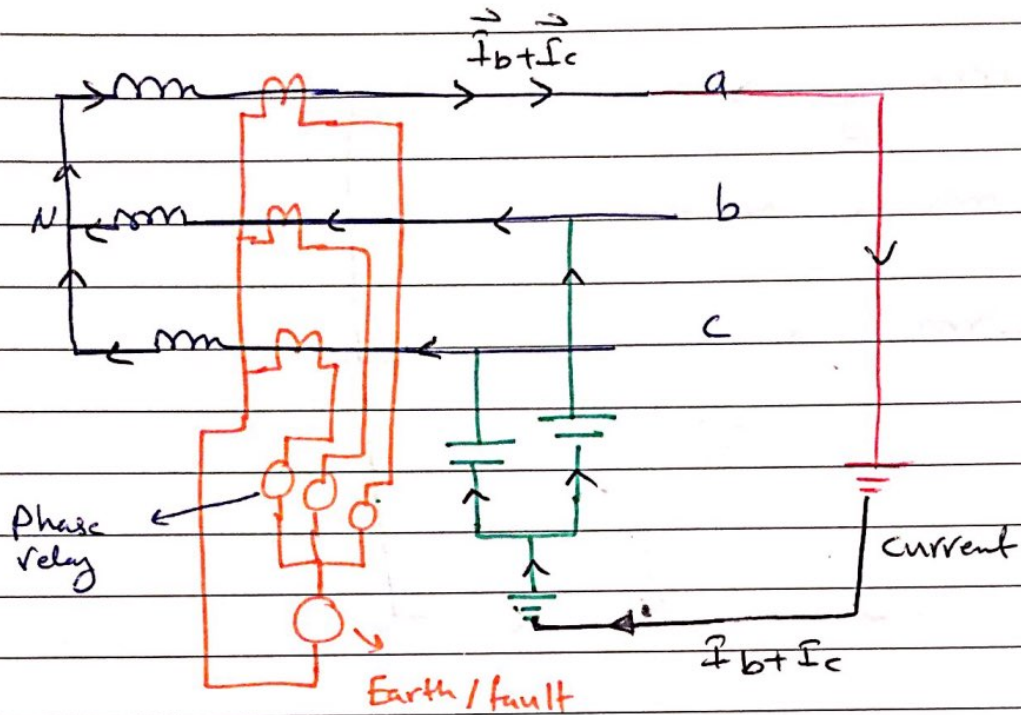 I⃗b+I⃗c
a
N
b
c
Phase
relay
current
I⃗b+Ic
Earth / fault